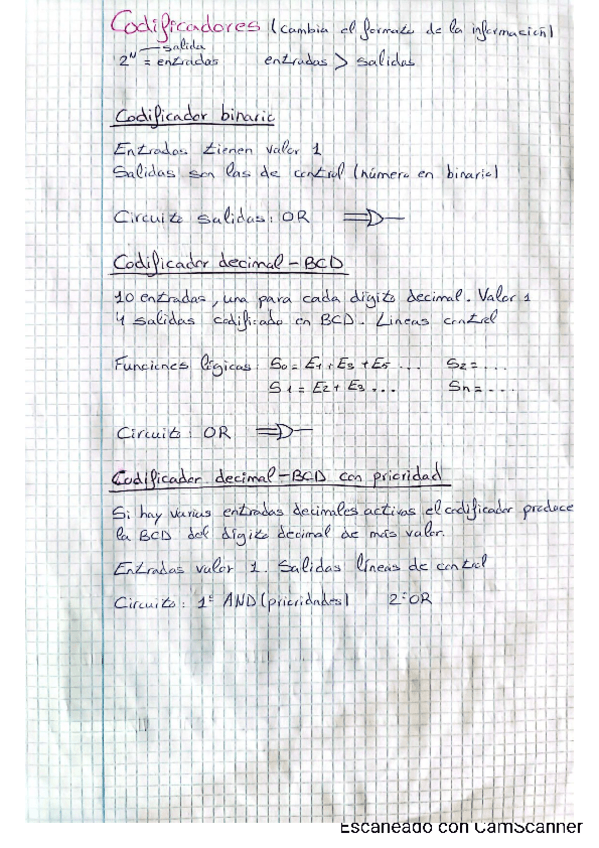 Codificadores (cambia el formato de la información)
salida
2^N = entradas entradas > salidas
Codificador binario
Entradas tienen valor 1
Salidas son las de control (número en binario)
Circuito salidas: OR
Codificador decimal - BCD
10 entradas, una para cada dígito decimal. Valor 1
4 salidas codificado en BCD. Líneas control
Funciones lógicas: S0 = E1 + E3 + E5 ... S2 = ...
S1 = E2 + E3 ... Sn = ...
Circuito: OR
Codificador decimal - BCD con prioridad
Si hay varias entradas decimales activas el codificador produce
la BCD del dígito decimal de más valor.
Entradas valor 1. Salidas líneas de control
Circuito: 1º AND (prioridades) 2º OR
Escaneado con CamScanner